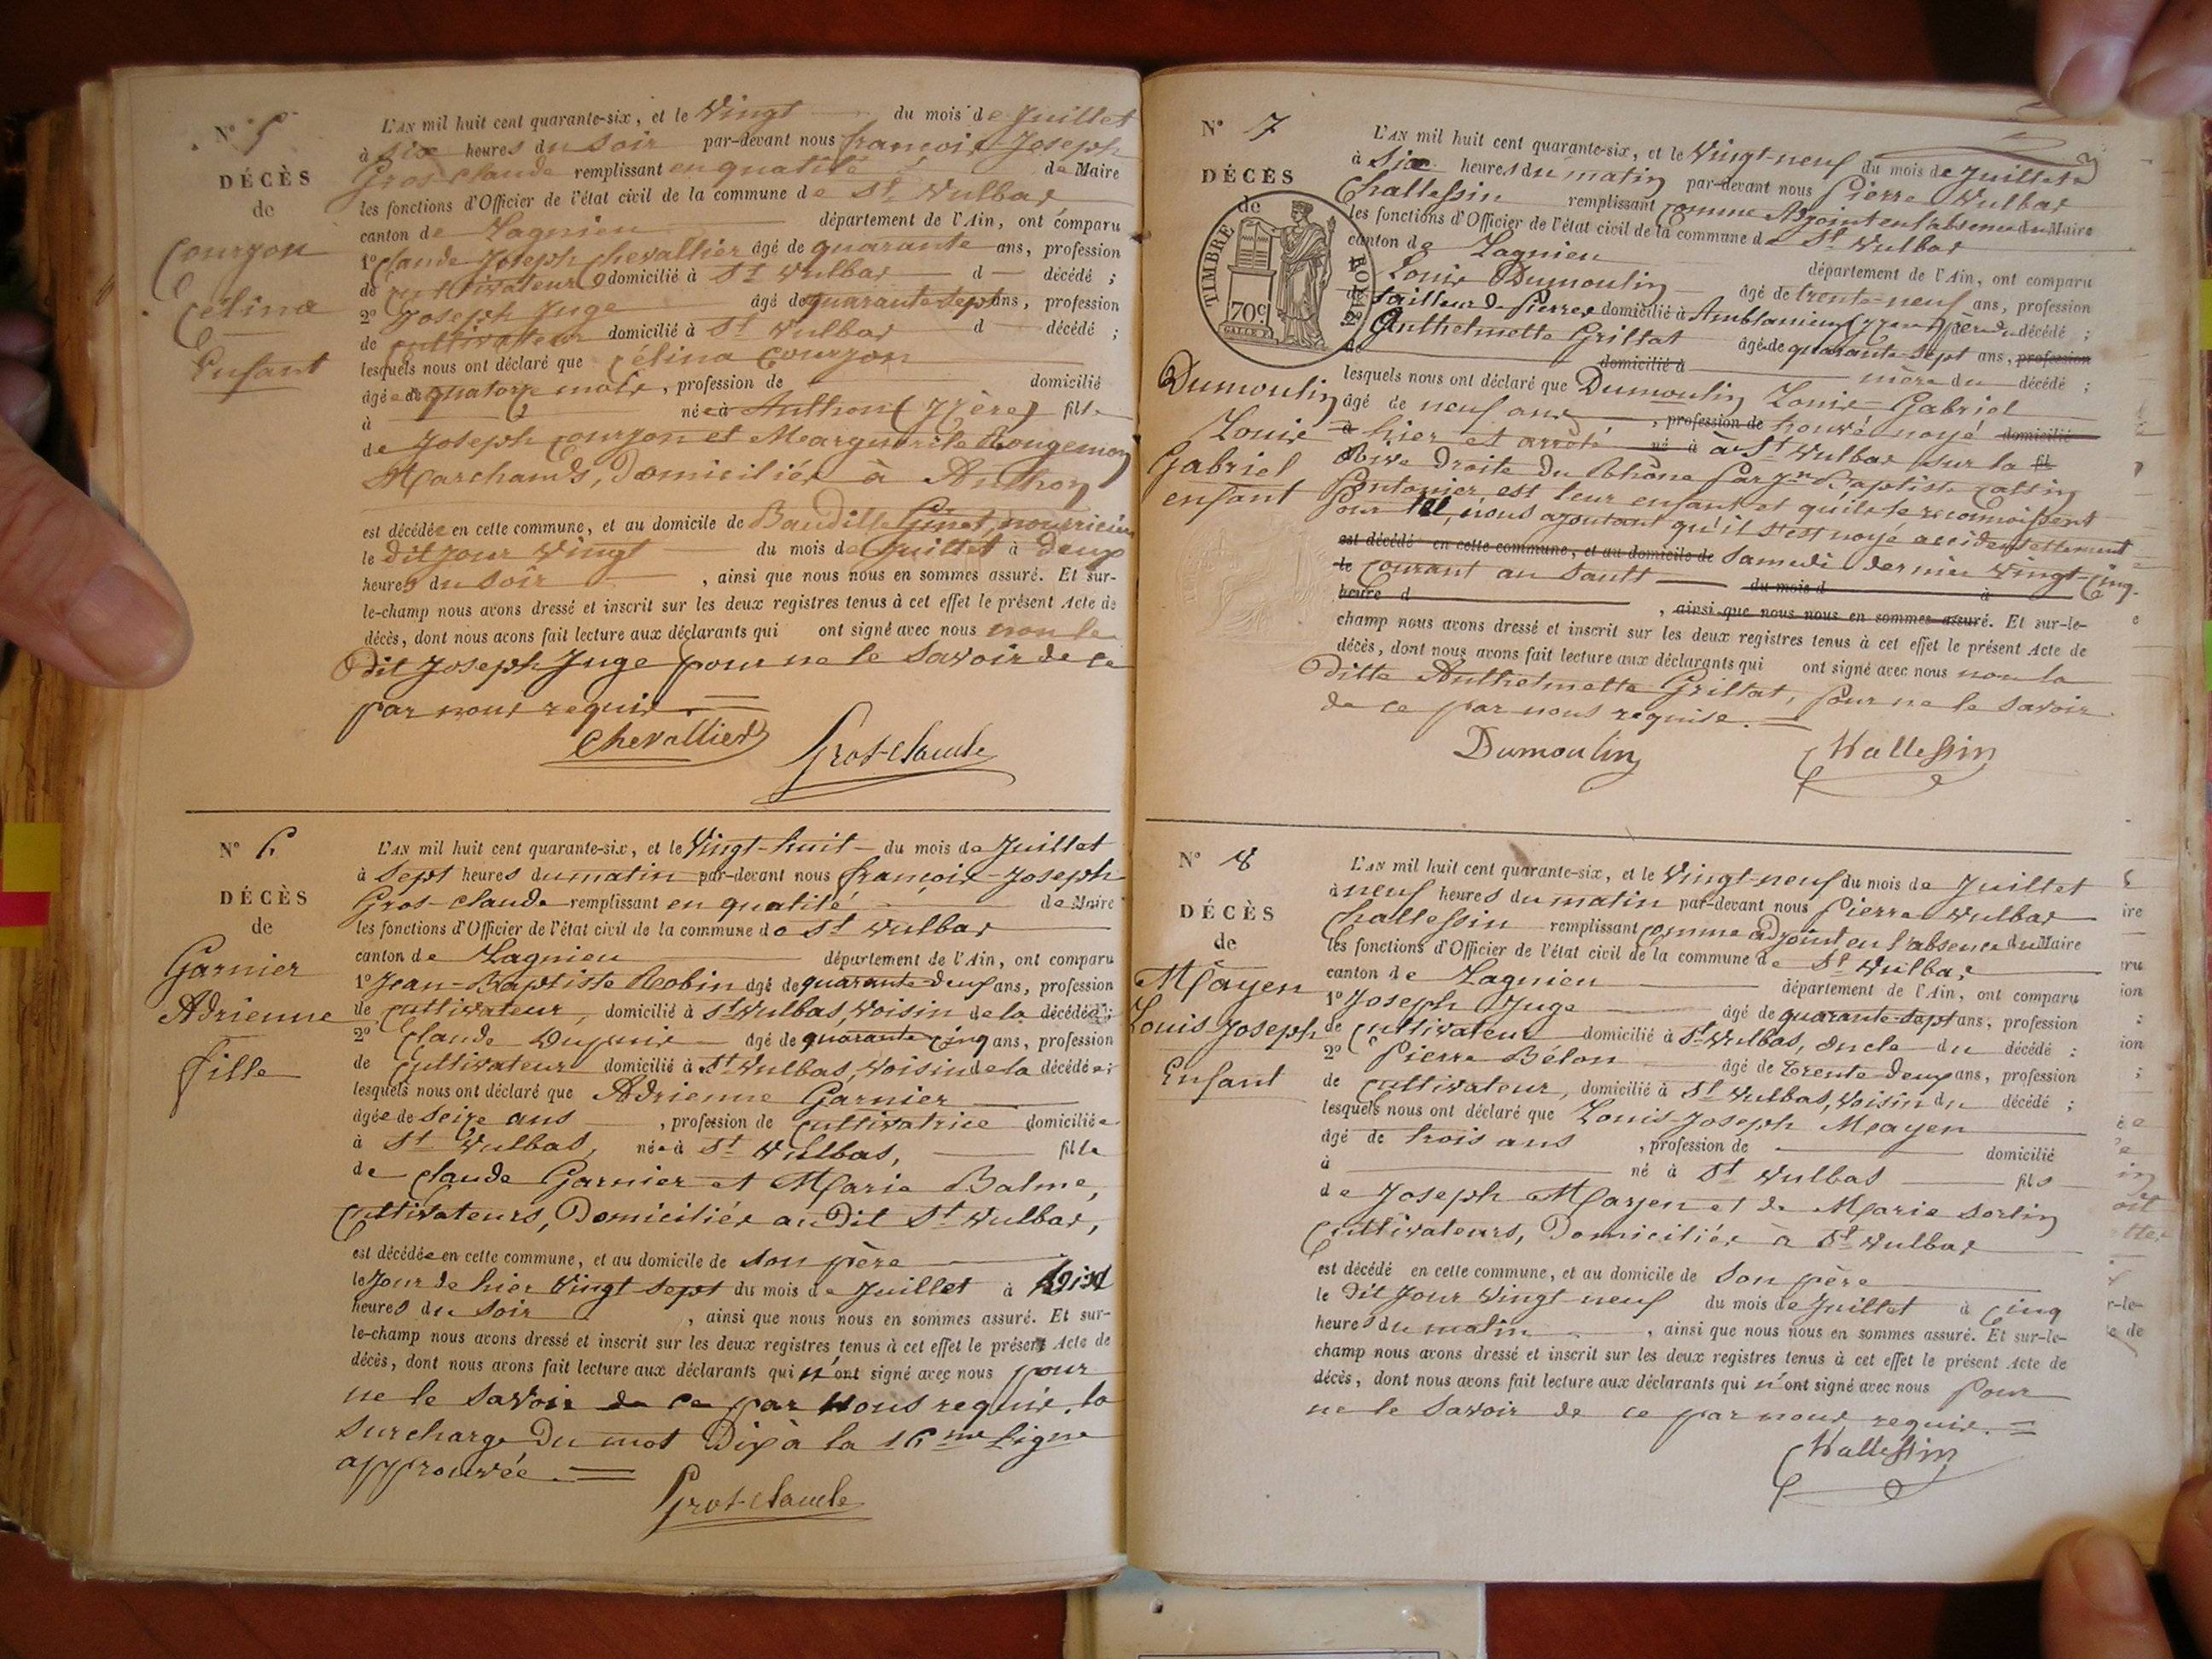 N° 5
DÉCÈS
de
Courzon
Célina
Enfant
L'AN mil huit cent quarante-six, et le Vingt du mois de Juillet
à six heures du Soir par-devant nous françois-Joseph
Gros-claude remplissant en qualité de Maire
les fonctions d'Officier de l'état civil de la commune de St. Vulbas
canton de Lagnieu département de l'Ain, ont comparu
1° Claude Joseph Chevallier âgé de quarante ans, profession
de Cultivateur domicilié à St Vulbas d décédé ;
2° Joseph Juge âgé de quarante sept ans, profession
de Cultivateur domicilié à St Vulbas d décédé ;
lesquels nous ont déclaré que Célina Courzon
âgée de quatorze mois, profession de domicilié
à née à Anthon (Isère) fille
de Joseph Courzon et Marguerite Rougemon
Marchands, Domiciliés à Anthon
est décédée en cette commune, et au domicile de Baudille Ginet, nourricier
le dit jour Vingt du mois de Juillet à deux
heures du soir , ainsi que nous nous en sommes assuré. Et sur-
le-champ nous avons dressé et inscrit sur les deux registres tenus à cet effet le présent Acte de
décès, dont nous avons fait lecture aux déclarants qui ont signé avec nous non le
Dit Joseph Juge pour ne le Savoir de ce
par nous requis.
Chevallier Gros-claude
N° 6
DÉCÈS
de
Garnier
Adrienne
fille
L'AN mil huit cent quarante-six, et le Vingt-huit du mois de Juillet
à Sept heures du matin par-devant nous françois-Joseph
Gros-claude remplissant en qualité de Maire
les fonctions d'Officier de l'état civil de la commune de St Vulbas
canton de Lagnieu département de l'Ain, ont comparu
1° Jean-Baptiste Robin âgé de quarante-deux ans, profession
de cultivateur, domicilié à St Vulbas, Voisin de la décédée ;
2° Claude Dupuis âgé de quarante cinq ans, profession
de Cultivateur domicilié à St Vulbas, Voisin de la décédée ;
lesquels nous ont déclaré que Adrienne Garnier
âgée de seize ans , profession de cultivatrice domiciliée
à St Vulbas, née à St Vulbas, fille
de Claude Garnier et Marie Balme,
Cultivateurs, Domiciliés au Dit St Vulbas,
est décédée en cette commune, et au domicile de son père
le Jour de hier Vingt sept du mois de Juillet à dix
heures du soir , ainsi que nous nous en sommes assuré. Et sur-
le-champ nous avons dressé et inscrit sur les deux registres tenus à cet effet le présent Acte de
décès, dont nous avons fait lecture aux déclarants qui n'ont signé avec nous pour
ne le savoir de ce par Nous requis. la
surcharge Du mot Dix à la 16me Ligne
approuvée.
Gros-claude
N° 7
DÉCÈS
de
TIMBRE ROYAL
70c
Dumoulin
Louis
Gabriel
enfant
L'AN mil huit cent quarante-six, et le Vingt-neuf du mois de Juillet
à Six heures du matin par-devant nous Pierre Vulbas
Challessin remplissant comme Adjoint en l'absence du Maire
les fonctions d'Officier de l'état civil de la commune de St Vulbas
canton de Lagnieu département de l'Ain, ont comparu
Louis Dumoulin âgé de trente-neuf ans, profession
de tailleur de Pierres domicilié à Amblanieu (Isère) père du décédé ;
2° Anthelmette Grillat âgé de quarante-sept ans, profession
de domicilié à mère du décédé ;
lesquels nous ont déclaré que Dumoulin Louis-Gabriel
âgé de neuf ans , profession de trouvé noyé domicilié
à hier et arrêté né à à St Vulbas sur la fil
Rive droite du Rhône Par Jn Baptiste Cottin
Pontonier, est leur enfant et qu'ils le reconnoissent
Pour tel, nous ajoutant qu'il s'est noyé accidentellement
est décédé en cette commune, et au domicile de Samedi dernier Vingt-Cinq
le Courant au Sault du mois d à
heure d , ainsi que nous nous en sommes assuré. Et sur-le-
champ nous avons dressé et inscrit sur les deux registres tenus à cet effet le présent Acte de
décès, dont nous avons fait lecture aux déclarants qui ont signé avec nous non la
Ditte Anthelmette Grillat, pour ne le savoir
de ce par nous requise.
Dumoulin Challessin
N° 8
DÉCÈS
de
Mayen
Louis Joseph
Enfant
L'AN mil huit cent quarante-six, et le Vingt-neuf du mois de Juillet
à neuf heures du matin par-devant nous Pierre Vulbas
Challessin remplissant comme adjoint en l'absence du Maire
les fonctions d'Officier de l'état civil de la commune de St Vulbas
canton de Lagnieu département de l'Ain, ont comparu
1° Joseph Juge âgé de quarante-sept ans, profession
de Cultivateur domicilié à St Vulbas, oncle du décédé ;
2° Pierre Bélon âgé de Trente-deux ans, profession
de cultivateur, domicilié à St Vulbas, Voisin du décédé ;
lesquels nous ont déclaré que Louis-Joseph Mayen
âgé de trois ans , profession de domicilié
à né à St Vulbas fils
de Joseph Mayen et de Marie Sorlin
Cultivateurs, Domiciliés à St Vulbas
est décédé en cette commune, et au domicile de Son père
le Dit Jour Vingt neuf du mois de Juillet à Cinq
heures du matin , ainsi que nous nous en sommes assuré. Et sur-le-
champ nous avons dressé et inscrit sur les deux registres tenus à cet effet le présent Acte de
décès, dont nous avons fait lecture aux déclarants qui n'ont signé avec nous Pour
ne le Savoir de ce par nous requis.
Challessin